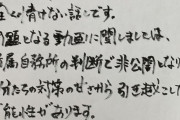 く情けない話です。
題となる動画に関しましては、
属事務所の判断で非公開となり
分たちの対策の甘さから引き起こして
能性があります。